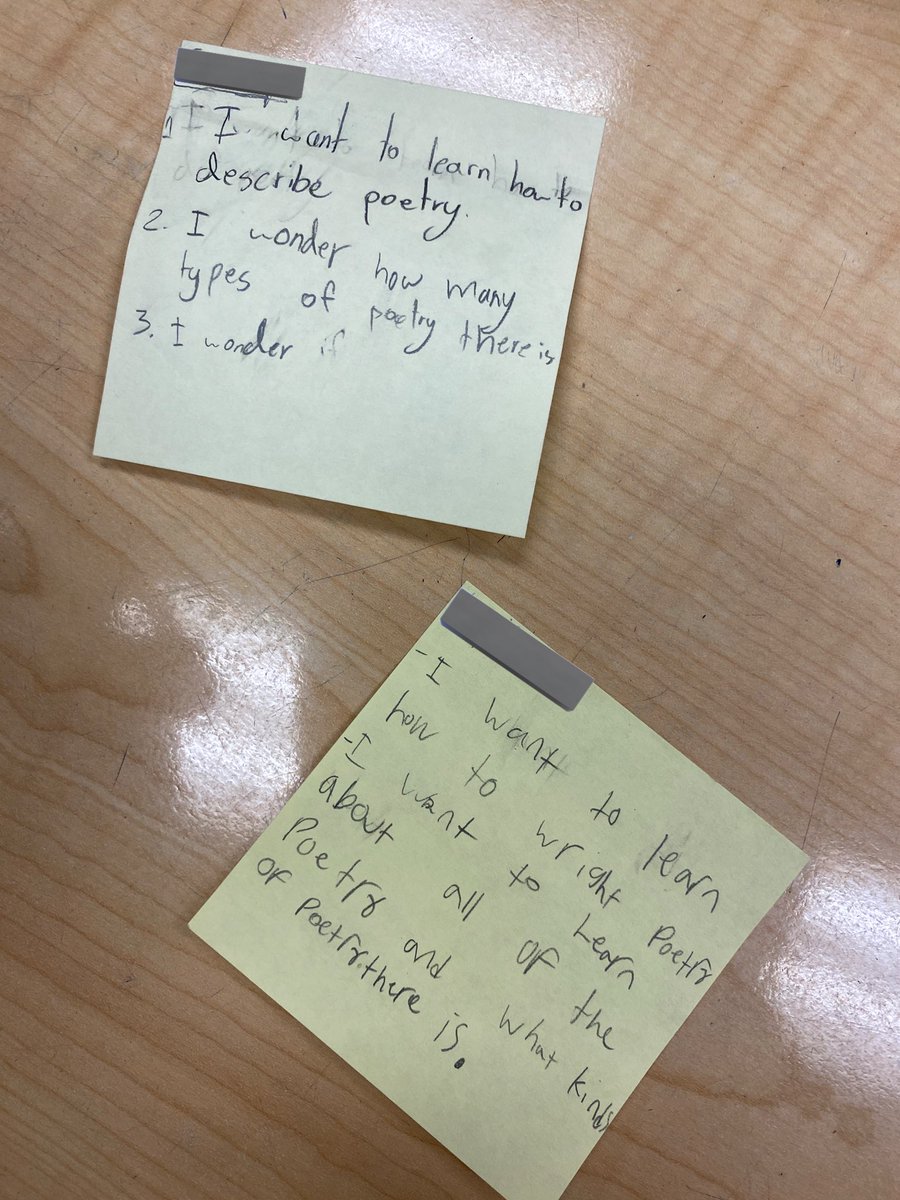 1 I want to learn how to
describe poetry.
2. I wonder how many
types of poetry there is
3. I wonder if
-I want to learn
how to wright Poetry
-I want to Learn
about all of the
Poetry and what kinds
of Poetry.there is.